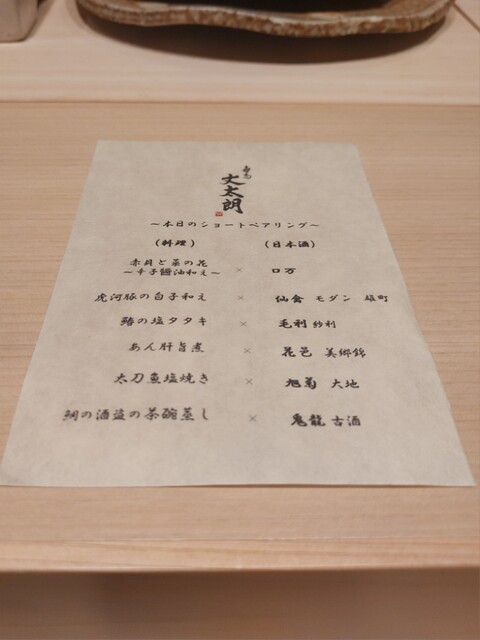 寿司
丈太朗
〜本日のショートペアリング〜
（料理） （日本酒）
赤貝と菜の花
〜辛子醤油和え〜 × ロ万
虎河豚の白子和え × 仙禽 モダン 雄町
鰆の塩タタキ × 毛利 紗利
あん肝旨煮 × 花邑 美郷錦
太刀魚塩焼き × 旭菊 大地
鯛の酒盗の茶碗蒸し × 鬼龍 古酒